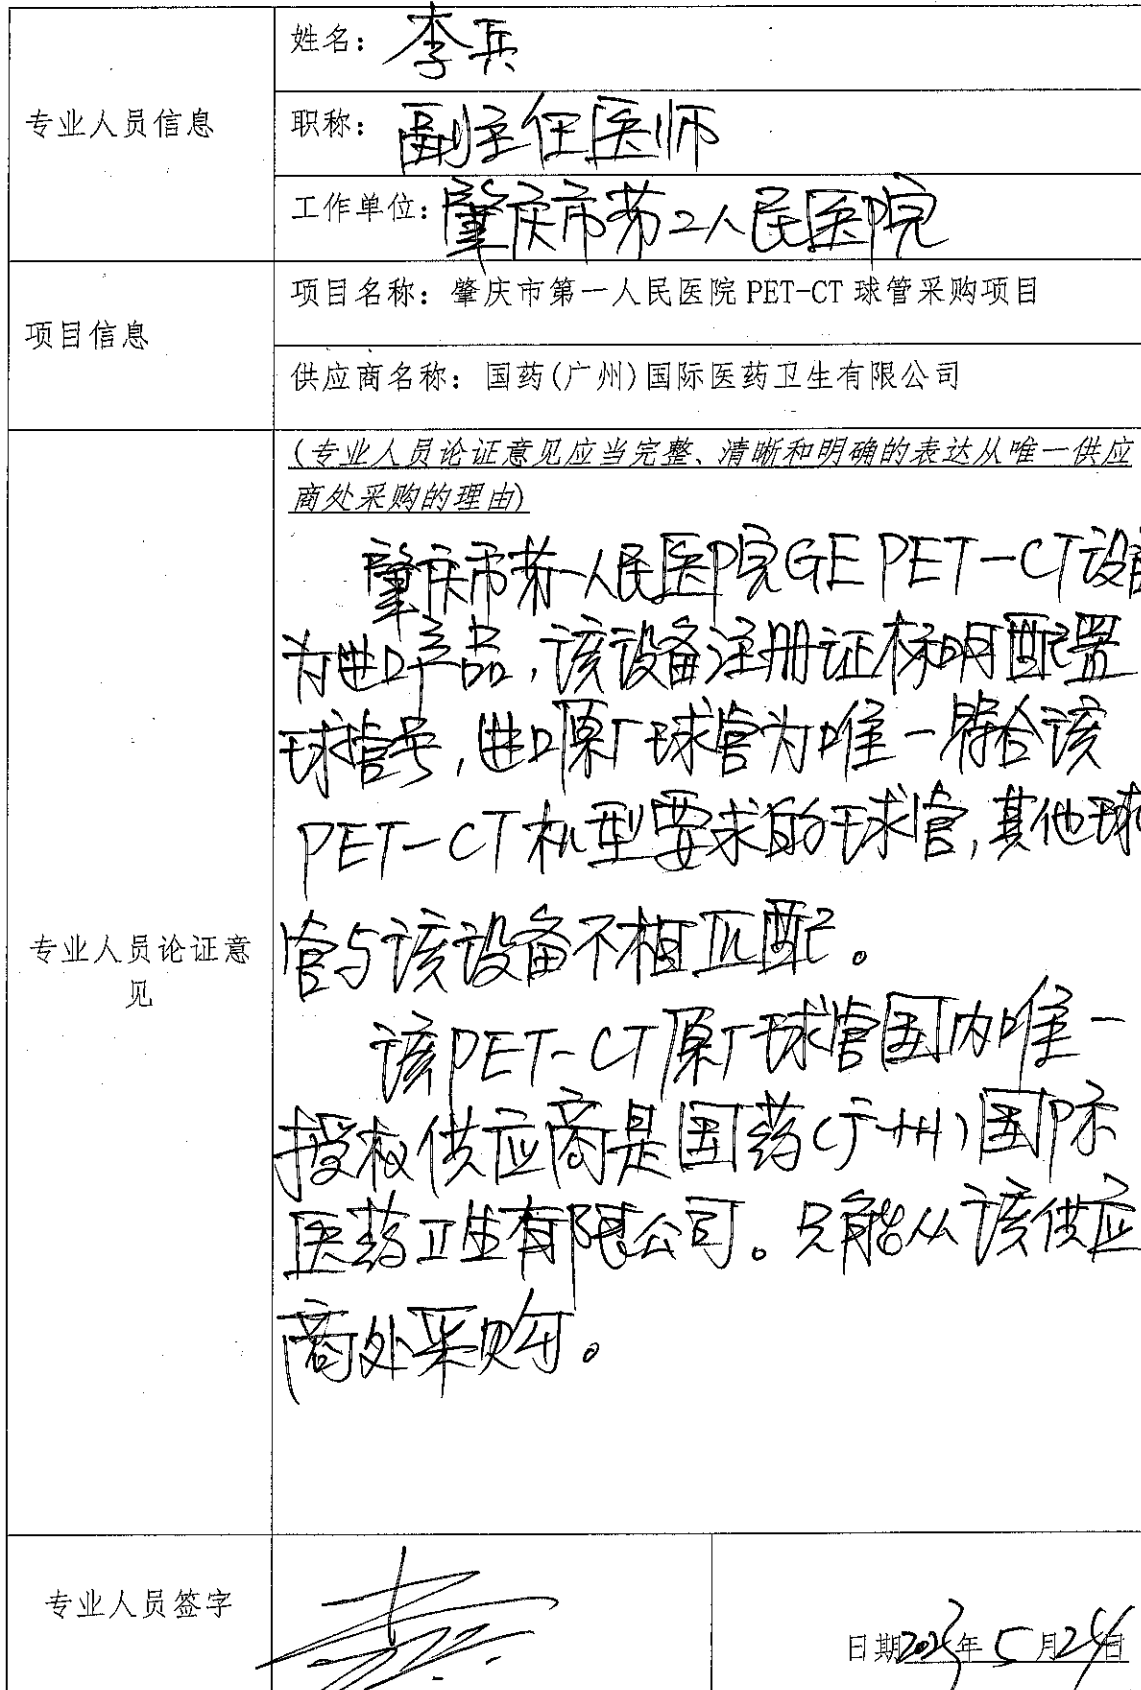 专业人员信息
姓名：李兵
职称：副主任医师
工作单位：肇庆市第二人民医院
项目信息
项目名称：肇庆市第一人民医院PET-CT球管采购项目
供应商名称：国药(广州)国际医药卫生有限公司
专业人员论证意
见
(专业人员论证意见应当完整、清晰和明确的表达从唯一供应
商处采购的理由)
肇庆市第一人民医院GE PET-CT设备
为进口产品，该设备注册证标明配置
球管号，进口原厂球管为唯一符合该
PET-CT机型要求的球管，其他球
管与该设备不相匹配。
该PET-CT原厂球管国内唯一
授权供应商是国药(广州)国际
医药卫生有限公司。只能从该供应
商处采购。
专业人员签字
日期 年5月24日